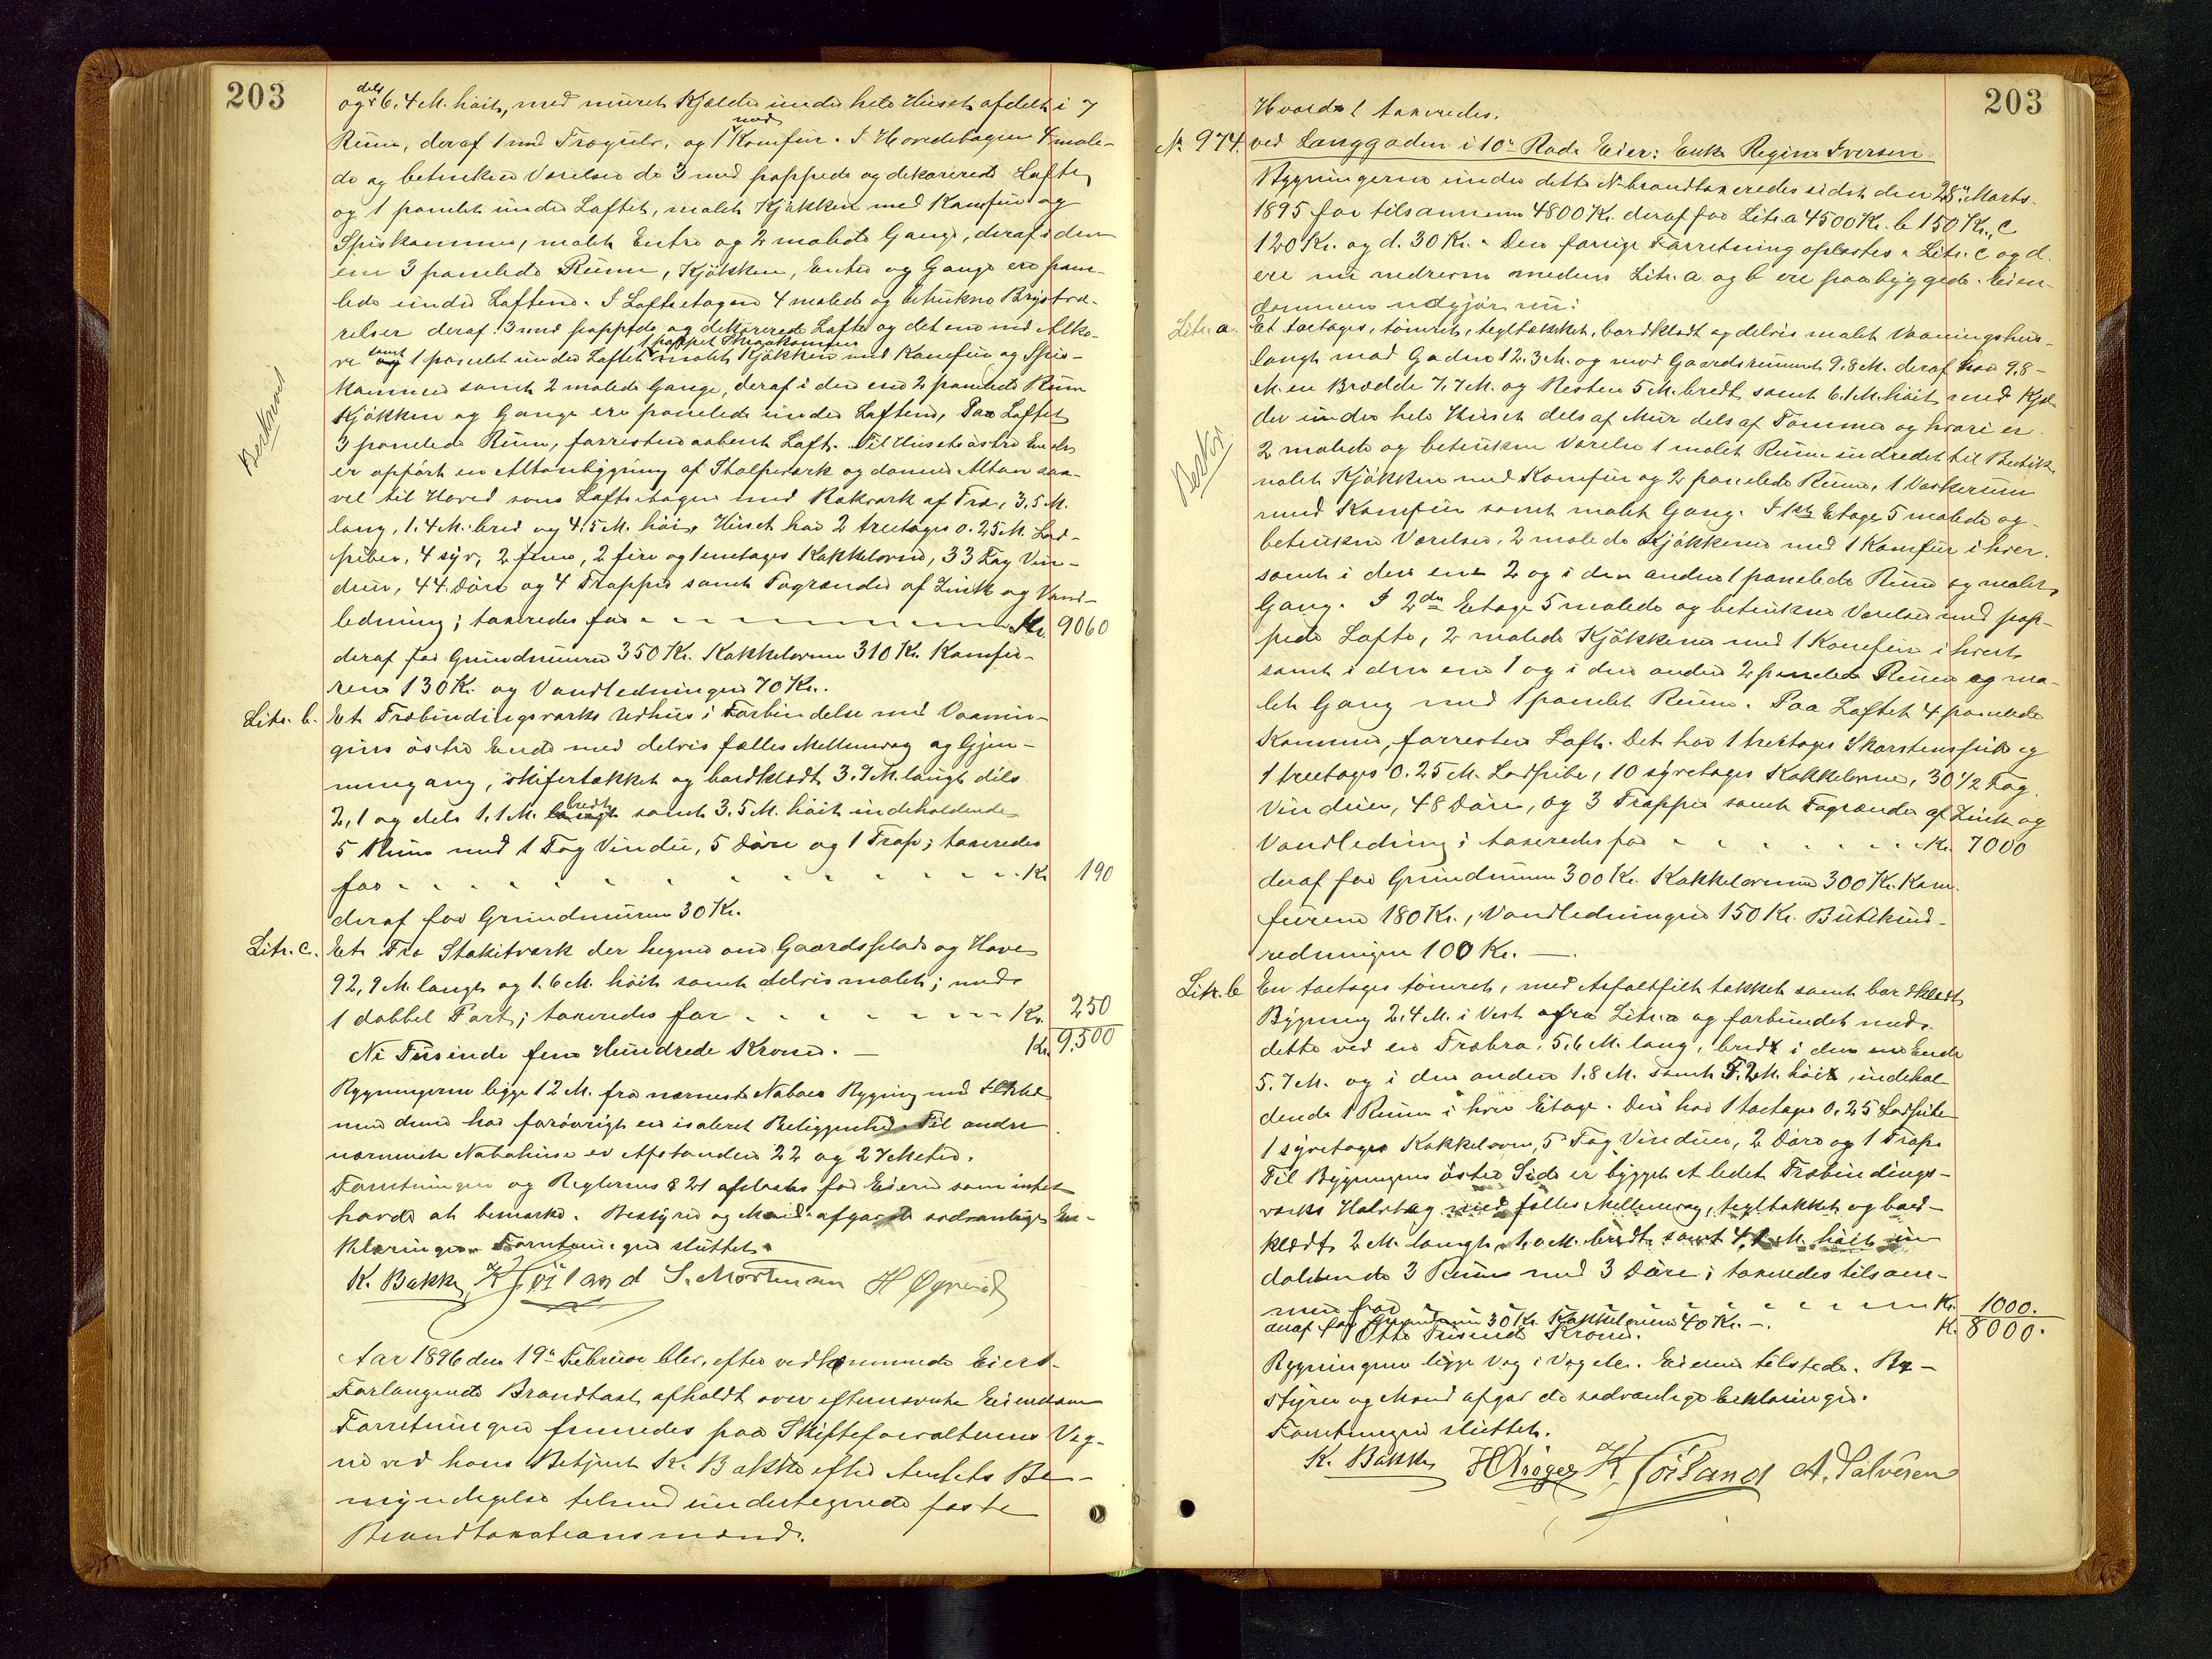 203
og dels 6.4 M. höit, med muret Kjelder under hele Huset afdelt i 7
Rum, deraf 1 med Trægulv, og 1 med Komfur. I Hovedetagen 4 male-
de og betrukne Værelser de 3 med pappede og dekorerede Lofte
og 1 panelet under Loftet, malet Kjøkken med Komfur og
Spiskammer, malet Entre og 2 malede Gange, deraf i den
ene 3 panelede Rum, Kjökken, Entre og Gange ere pane-
lede under Loftene. I Loftsetagen 4 malede og betrukne Bryst væ-
relser deraf 3 med pappede og dekorerede Lofte og det ene med Alko-
ve samt 1 panelet under Loftet 1 pappet Skraakammer malet Kjökken med Komfur og Spis-
kammer samt 2 malede Gange, deraf i den ene 2 panelede Rum
Kjökken og Gange ere panelede under Loftene, Paa Loftet
3 panelede Rum, forresten aabent Loft. Til Husets østre Ende
er opført en Altanbygning af Stolpeværk og danner Altan saa-
vel til Hoved som Loftsetagen med Rækværk af Træ, 3.5 M.
lang, 1.4 M. bred og 4.5 M. höi. Huset har 2 treetages 0.25 M. Lod-
piber, 4 syv, 2 fem, 2 fire og 1 enetages Kakkelovne, 33 Fag Vin-
duer, 44 Döre og 4 Trapper samt Tagrender af Zink og Vand-
ledning; taxeredes for Kr. 9060
deraf for Grundmuren 350 Kr. Kakkelovnene 310 Kr. Komfu-
rene 130 Kr. og Vandledningen 70 Kr.
Beskreved
Litr. b. Et Træbindingsværks Udhus i Forbindelse med Vaanin-
gens östre Ende med delvis fælles Mellemvæg og Gjen-
nemgang, skifertækket og bordklædt 3.9 M. langt dels
2,1 og dels 1.1 M. bredt samt 3.5 M. höit indeholdende
5 Rum med 1 Fag Vindu, 5 Döre og 1 Trap; taxeredes
for Kr. 190
deraf for Grundmuren 30 Kr.
Litr. c. Et Træ Stakitværk der hegner om Gaardsplads og Have
92,9 M. langt og 1.6 M. höit samt delvis malet; med
1 dobbel Port; taxeredes for Kr. 250
Ni Tusinde fem Hundrede Kroner. Kr. 9,500
Bygningerne ligge 12 M. fra nærmeste Naboes Bygning med
men denne har forövrigt en isoleret Beliggenhed. Til andre
nærmeste Nabohuse er Afstanden 22 og 27 Meter.
Forretningen og Reglernes § 21 oplæstes for Eieren som intet
havde at bemærke. Bestyrer og Mænd afgav de sædvanlige Er-
klæringer. Forretningen sluttet.
K. Bakke K Höiland S. Mortensen H Øgreid
Aar 1896 den 19de Februar blev, efter vedkommende Eiers
Forlangende Brandtaxt afholdt over efternævnte Eiendom
Forretningen fremmedes paa Skifteforvalterens Veg-
ne ved hans Betjent K. Bakke efter Amtets Be-
myndigelse tilmed undertegnede faste
Brandtaxationsmænd.
203
Hvorda taxeredes.
No 974. ved Langgaden i 10de Rode Eier: Enke Regine Iversen
Bygningerne under dette No brandtaxeredes sidst den 28de Marts
1895 for tilsammen 4800 Kr. deraf for Litr. a 4500 Kr. b 150 Kr., c
120 Kr. og d. 30 Kr. Den forrige Forretning oplæstes. Litr. c og d.
ere nu nedrevne medens Litr. a og b ere paabyggede. Eien-
dommen udgjör nu:
Litr. a. Et toetages, tömret, tegltækket, bordklædt og delvis malet Vaaningshus
langt mod Gaden 12.3 M. og mod Gaardsrummet 9.8 M. deraf har 9,8
M. en Bredde 7.7 M. og Resten 5 M. bredt samt 6.1 M. höit med Kjel-
der under hele Huset dels af Mur dels af Tømmer og hvori er
2 malede og betrukne Værelser 1 malet Rum indredet til Butik,
malet Kjökken med Komfur og 2 panelede Rum, 1 Vaskerum
med Komfur samt malet Gang. I 1ste Etage 5 malede og
betrukne Værelser, 2 malede Kjökkener med 1 Komfur i hver.
samt i den ene 2 og i den anden 1 panelede Rum og malet
Gang. I 2den Etage 5 malede og betrukne Værelser med pap-
pede Lofte, 2 malede Kjökkener med 1 Komfur i hvert
samt i den ene 1 og i den anden 2 panelede Rum og ma-
let Gang med 1 panelet Rum. Paa Loftet 4 panelede
Kammer, forresten Loft. Det har 1 treetages Skorstenspibe og
1 treetages 0.25 M. Lodpibe, 10 syvetages Kakkelovne, 30 1/2 Fag
Vinduer, 48 Döre, og 3 Trapper samt Tagrender af Zink og
Vandledning; taxeredes for Kr. 7000
deraf for Grundmuren 300 Kr. Kakkelovnene 300 Kr. Kom-
furene 180 Kr., Vandledningen 150 Kr. Butikind-
redningen 100 Kr.
Beskr
Litr. b En toetages tömret, med Asfaltfilt tækket samt bordklædt
Bygning 2.4 M. i Vest afra Litr. a og forbundet med
dette ved en Træbro. 5.6 M. lang, bredt i den ene Ende
5.7 M. og i den anden 1.8 M. samt 5.2 M. höit, indehol-
dende 1 Rum i hver Etage. Den har 1 toetages 0.25 Lodpibe
1 syvetages Kakkelovn, 5 Fag Vinduer, 2 Döre og 1 Trap.
Til Bygningens östre Side er bygget et lidet Træbindings-
værks Halvtag med fælles Mellemvæg, tegltækket og bord-
klædt, 2 M. langt, 1.0 M. bredt samt 4.1 M. höit in
doldende 3 Rum med 3 Döre; taxeredes tilsam-
men for Kr. 1000.
deraf for Grundmuren 30 Kr. Kakkelovnen 40 Kr.
Otte Tusinde Kroner. Kr. 8000.
Bygningerne ligge Væg i Væg etc. Eieren tilstede. Be-
styrer og Mænd afgav de sædvanlige Erklæringer.
Forretningen sluttet.
K. Bakke H Kröger K Höiland A. Salvesen